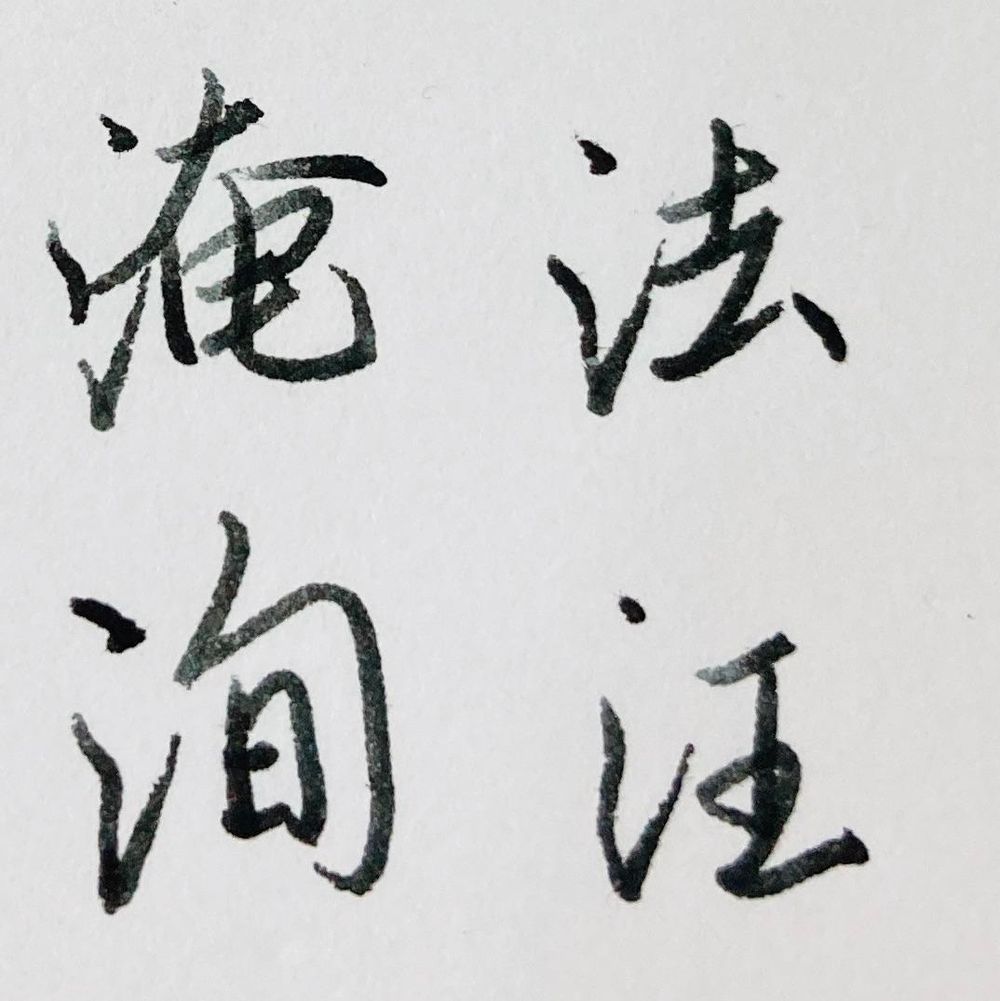 淹法
洵汪